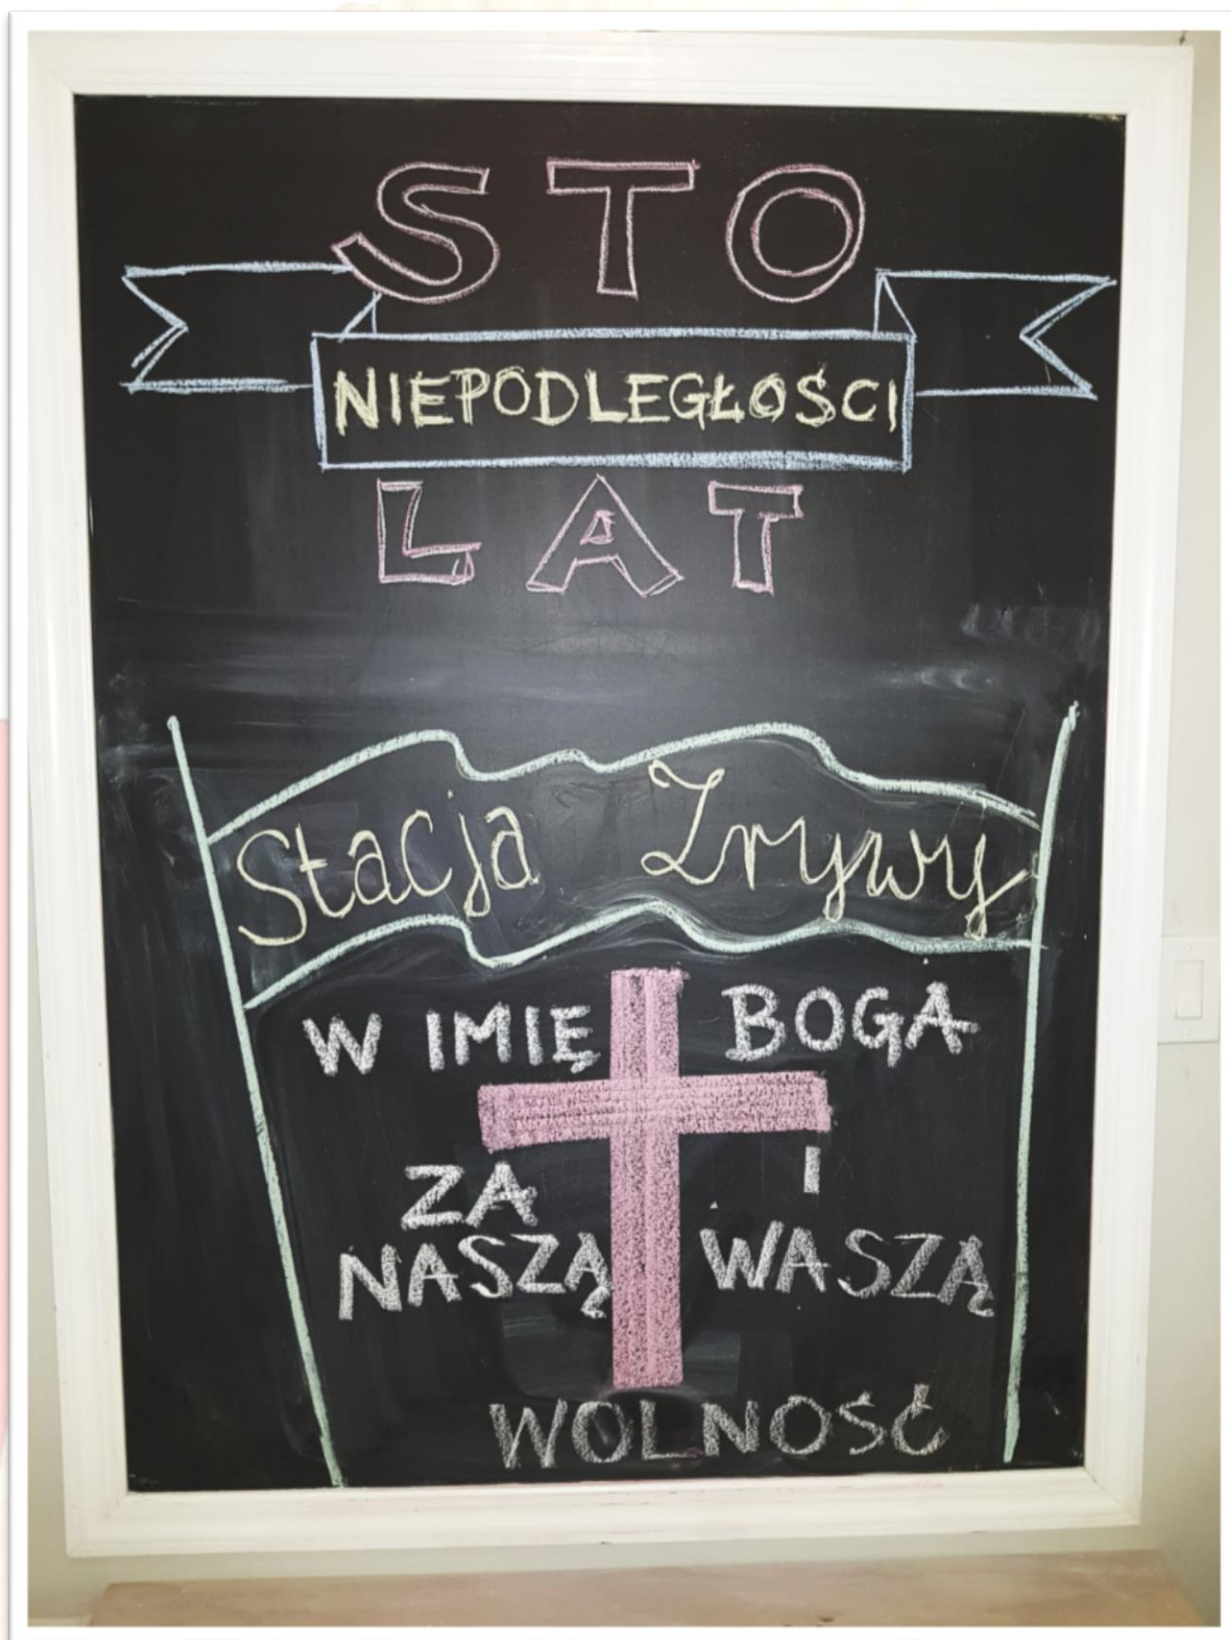 STO
NIEPODLEGŁOŚCI
LAT
Stacja Zrywy
W IMIĘ BOGA
ZA I
NASZĄ WASZĄ
WOLNOŚĆ